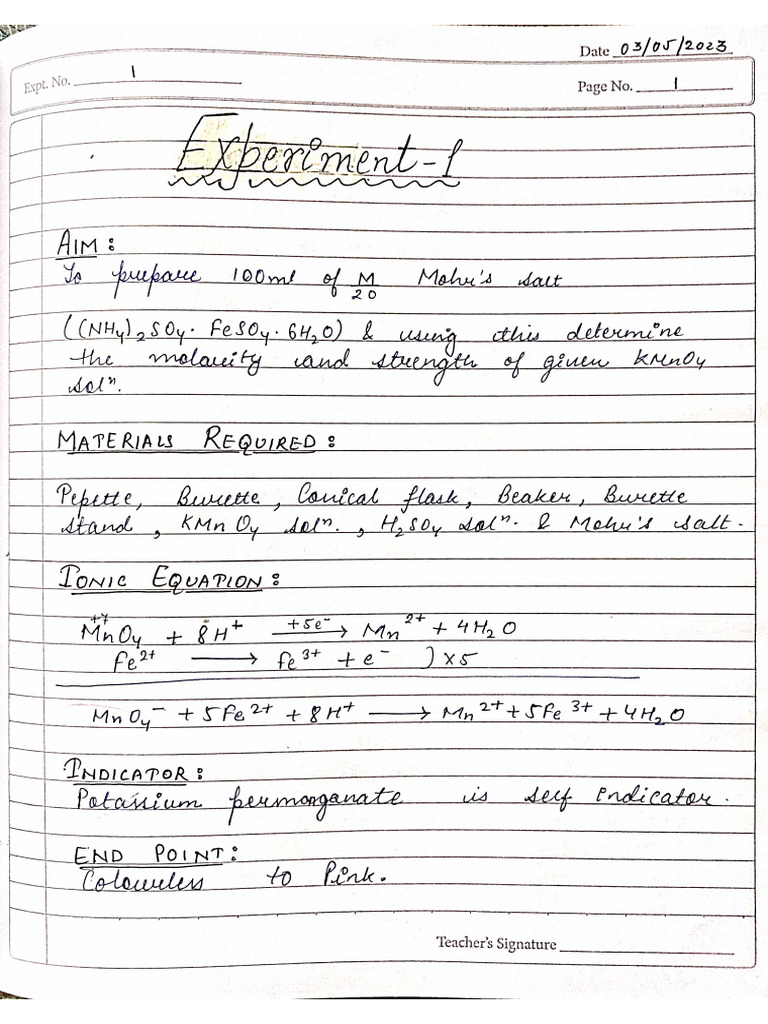 Date 03/05/2023
Expt. No. 1
Page No. 1
Experiment-1
AIM:
To prepare 100ml of M/20 Mohr's salt
((NH4)2SO4. FeSO4. 6H2O) & using this determine
the molarity and strength of given KMnO4
solⁿ.
MATERIALS REQUIRED:
Pepette, Burette, Conical flask, Beaker, Burette
stand, KMnO4 solⁿ., H2SO4 solⁿ. & Mohr's salt.
IONIC EQUATION:
+7
MnO4 + 8H⁺ +5e⁻ → Mn²⁺ + 4H2O
Fe²⁺ → Fe³⁺ + e⁻ )×5
MnO4⁻ + 5Fe²⁺ + 8H⁺ → Mn²⁺ + 5Fe³⁺ + 4H2O
INDICATOR:
Potassium permanganate is self indicator.
END POINT:
Colourless to Pink.
Teacher's Signature